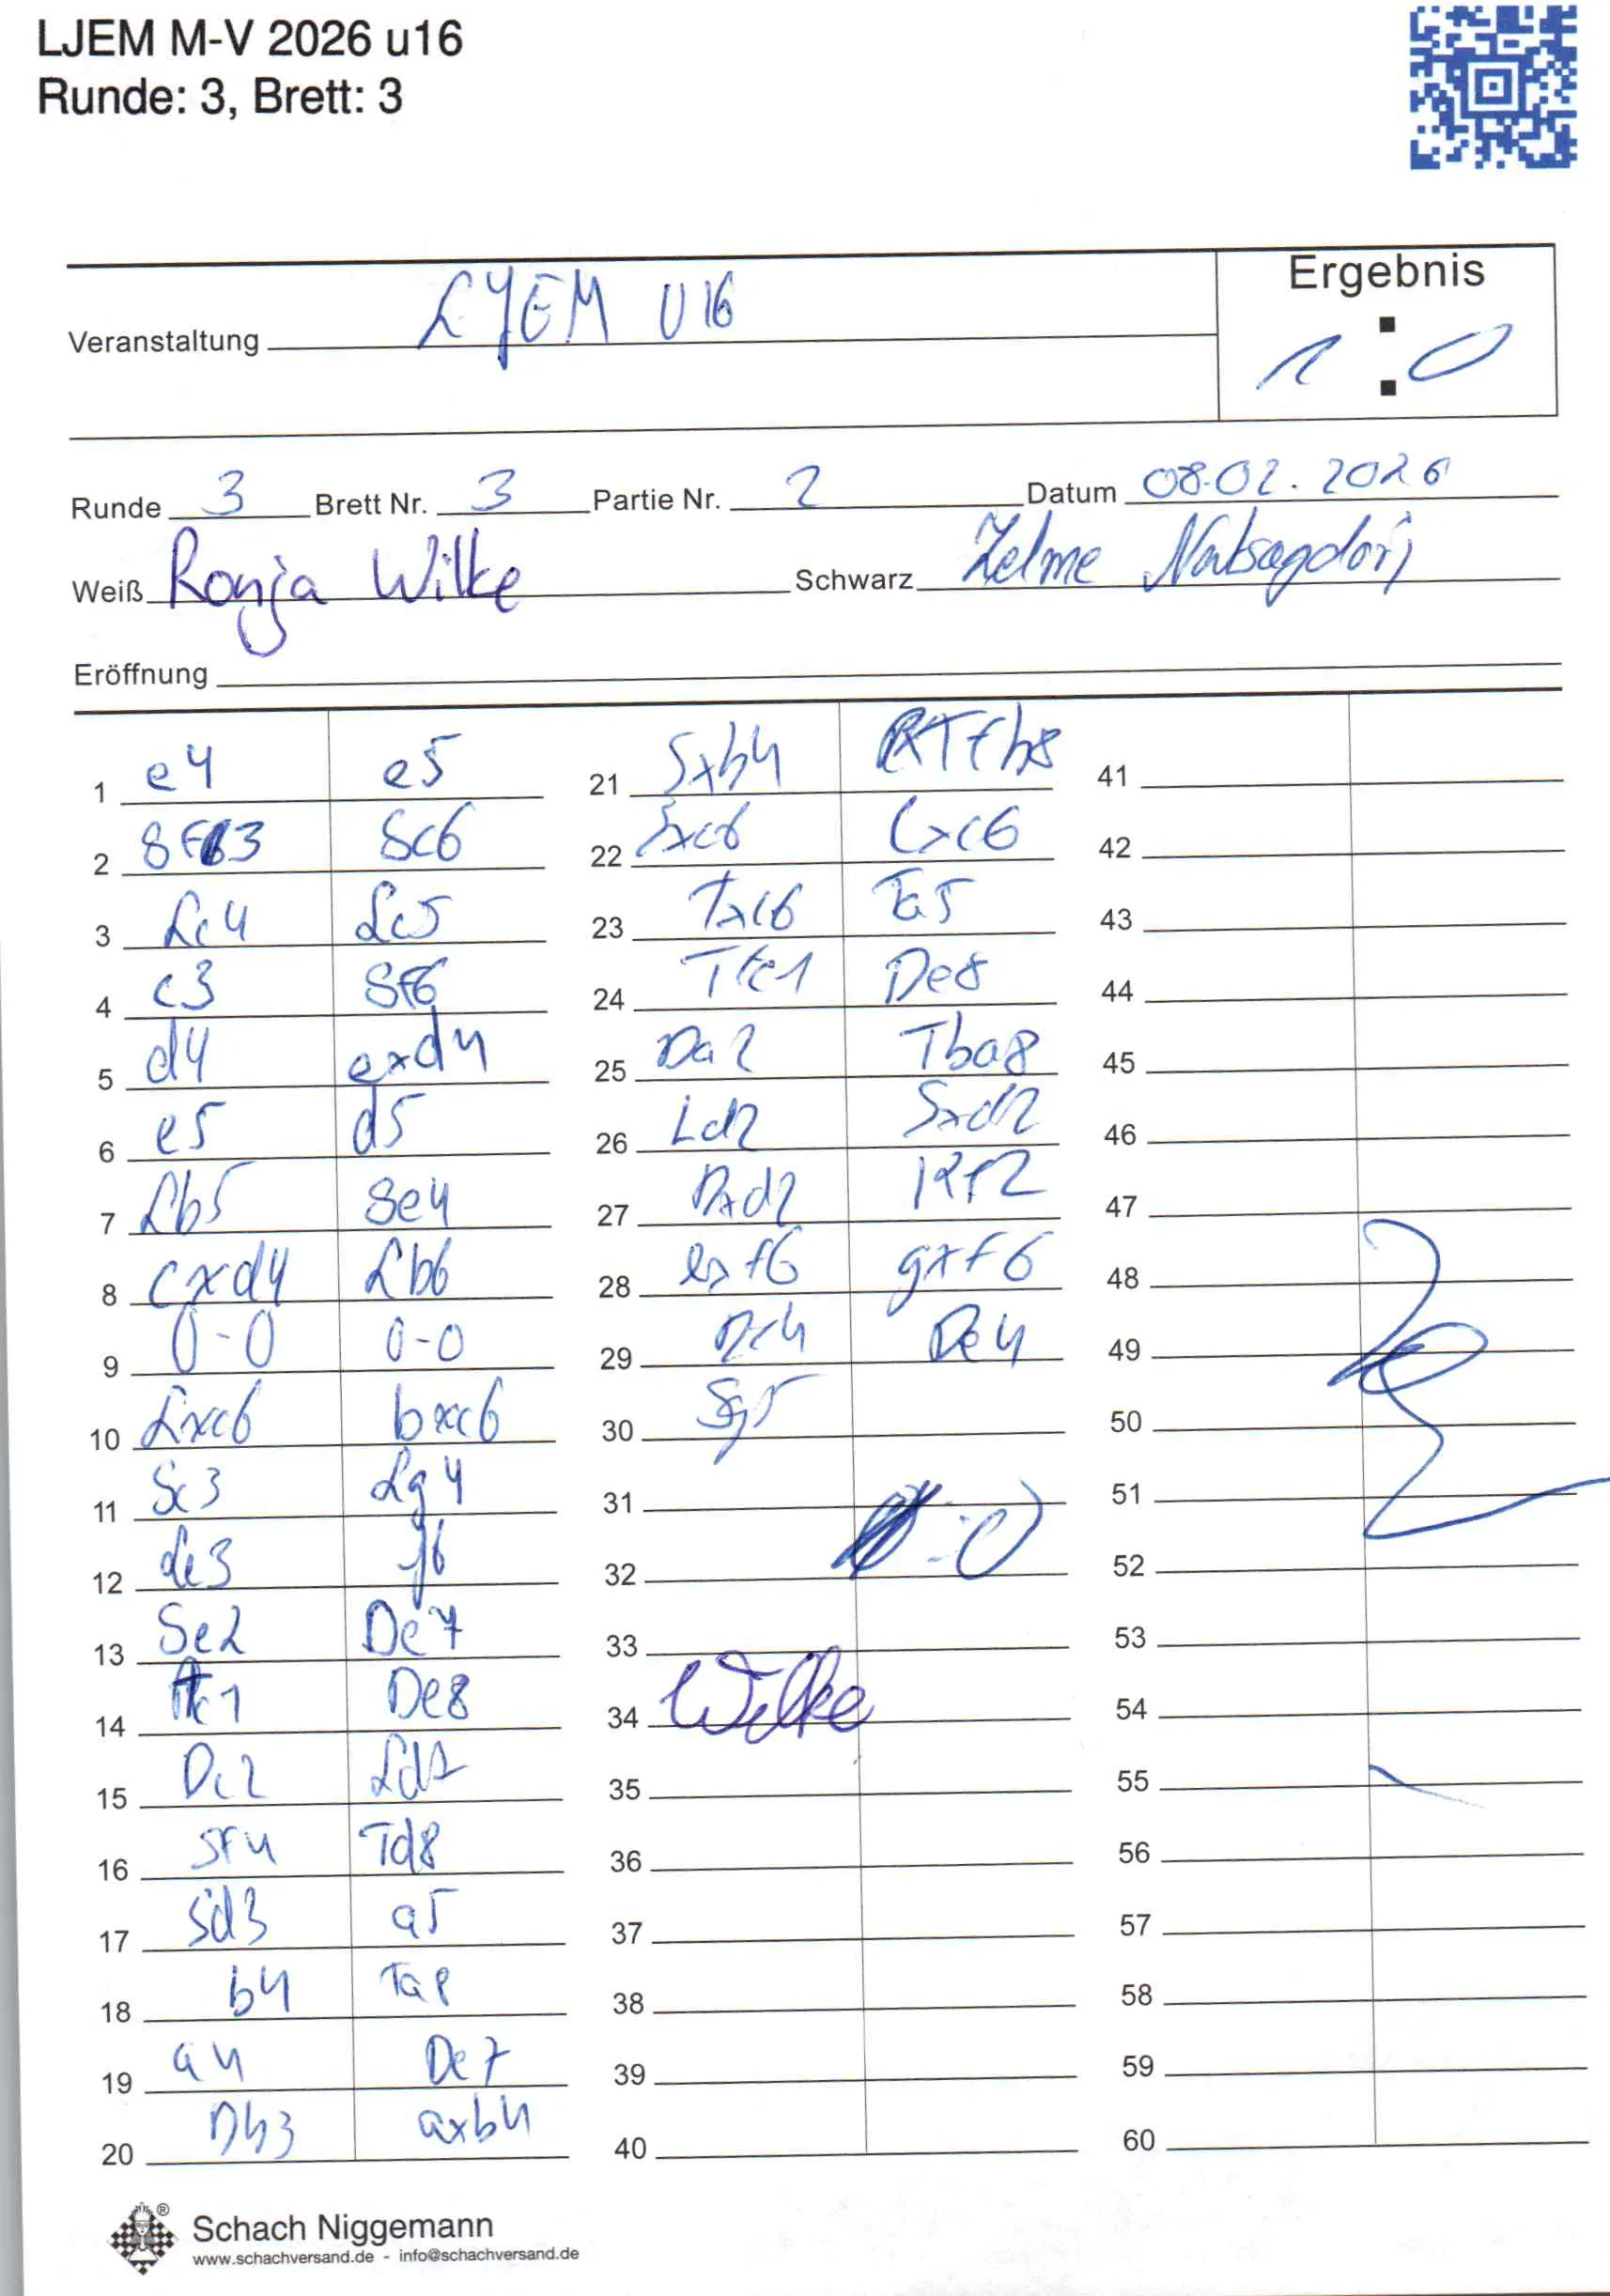 LJEM M-V 2026 u16
Runde: 3, Brett: 3
Ergebnis
Veranstaltung LJEM U16
1 : 0
Runde 3 Brett Nr. 3 Partie Nr. 2 Datum 08.02.2026
Weiß Ronja Wilke Schwarz Zelme
Eröffnung
1 e4 e5
2 Sf3 Sc6
3 Lc4 Lc5
4 c3 Sf6
5 d4 exd4
6 e5 d5
7 Lb5 Se4
8 cxd4 Lb6
9 0-0 0-0
10 Lxc6 bxc6
11 Sc3 Lg4
12 Le3 f6
13 Se2 De7
14 Tc1 De8
15 Dc2 Ld7
16 Sf4 Td8
17 Sd3 a5
18 b4 Ta8
19 a4 De7
20 Db3 axb4
21 Sxb4 Tfb8
22 Sxc6 Lxc6
23 Txc6 Ta5
24 Tfc1 De8
25 Da2 Tba8
26 Ld2 Sxd2
27 Dxd2 Kf7
28 exf6 gxf6
29 Df4 De4
30 Sg5
31
32
33
34 Wilke
35
36
37
38
39
40
41
42
43
44
45
46
47
48
49
50
51
52
53
54
55
56
57
58
59
60
Schach Niggemann
www.schachversand.de - info@schachversand.de